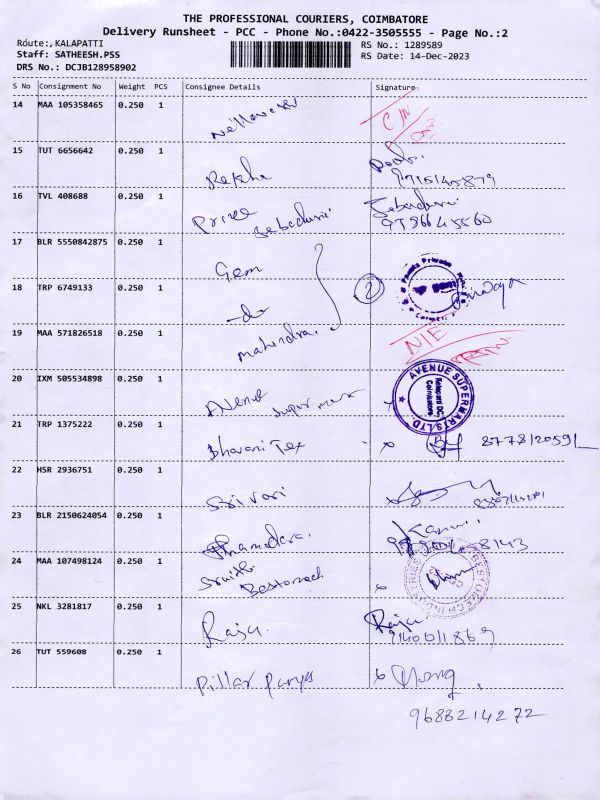 THE PROFESSIONAL COURIERS, COIMBATORE
Delivery Runsheet - PCC - Phone No.:0422-3505555 - Page No.:2
Route:,KALAPATTI
RS No.: 1289589
Staff: SATHEESH.PSS
RS Date: 14-Dec-2023
DRS No.: DCJB128958902
S No Consignment No Weight PCS Consignee Details Signature
14 MAA 105358465 0.250 1
15 TUT 6656642 0.250 1
Reksha
16 TVL 408688 0.250 1
Prince Jebaduri
17 BLR 5550842875 0.250 1
Gem
18 TRP 6749133 0.250 1
-do- 2
19 MAA 571826518 0.250 1
Mahindra. N/E
20 IXM 505534898 0.250 1
Avenue Supermar
AVENUE SUPERMARTS LTD.
Kalapatti DC,
Coimbatore
21 TRP 1375222 0.250 1
Bharani Tex
8778120591
22 HSR 2936751 0.250 1
Sri Vari
23 BLR 2150624054 0.250 1
24 MAA 107498124 0.250 1
25 NKL 3281817 0.250 1
Raju. Raju
26 TUT 559608 0.250 1
Pillar
9688214272